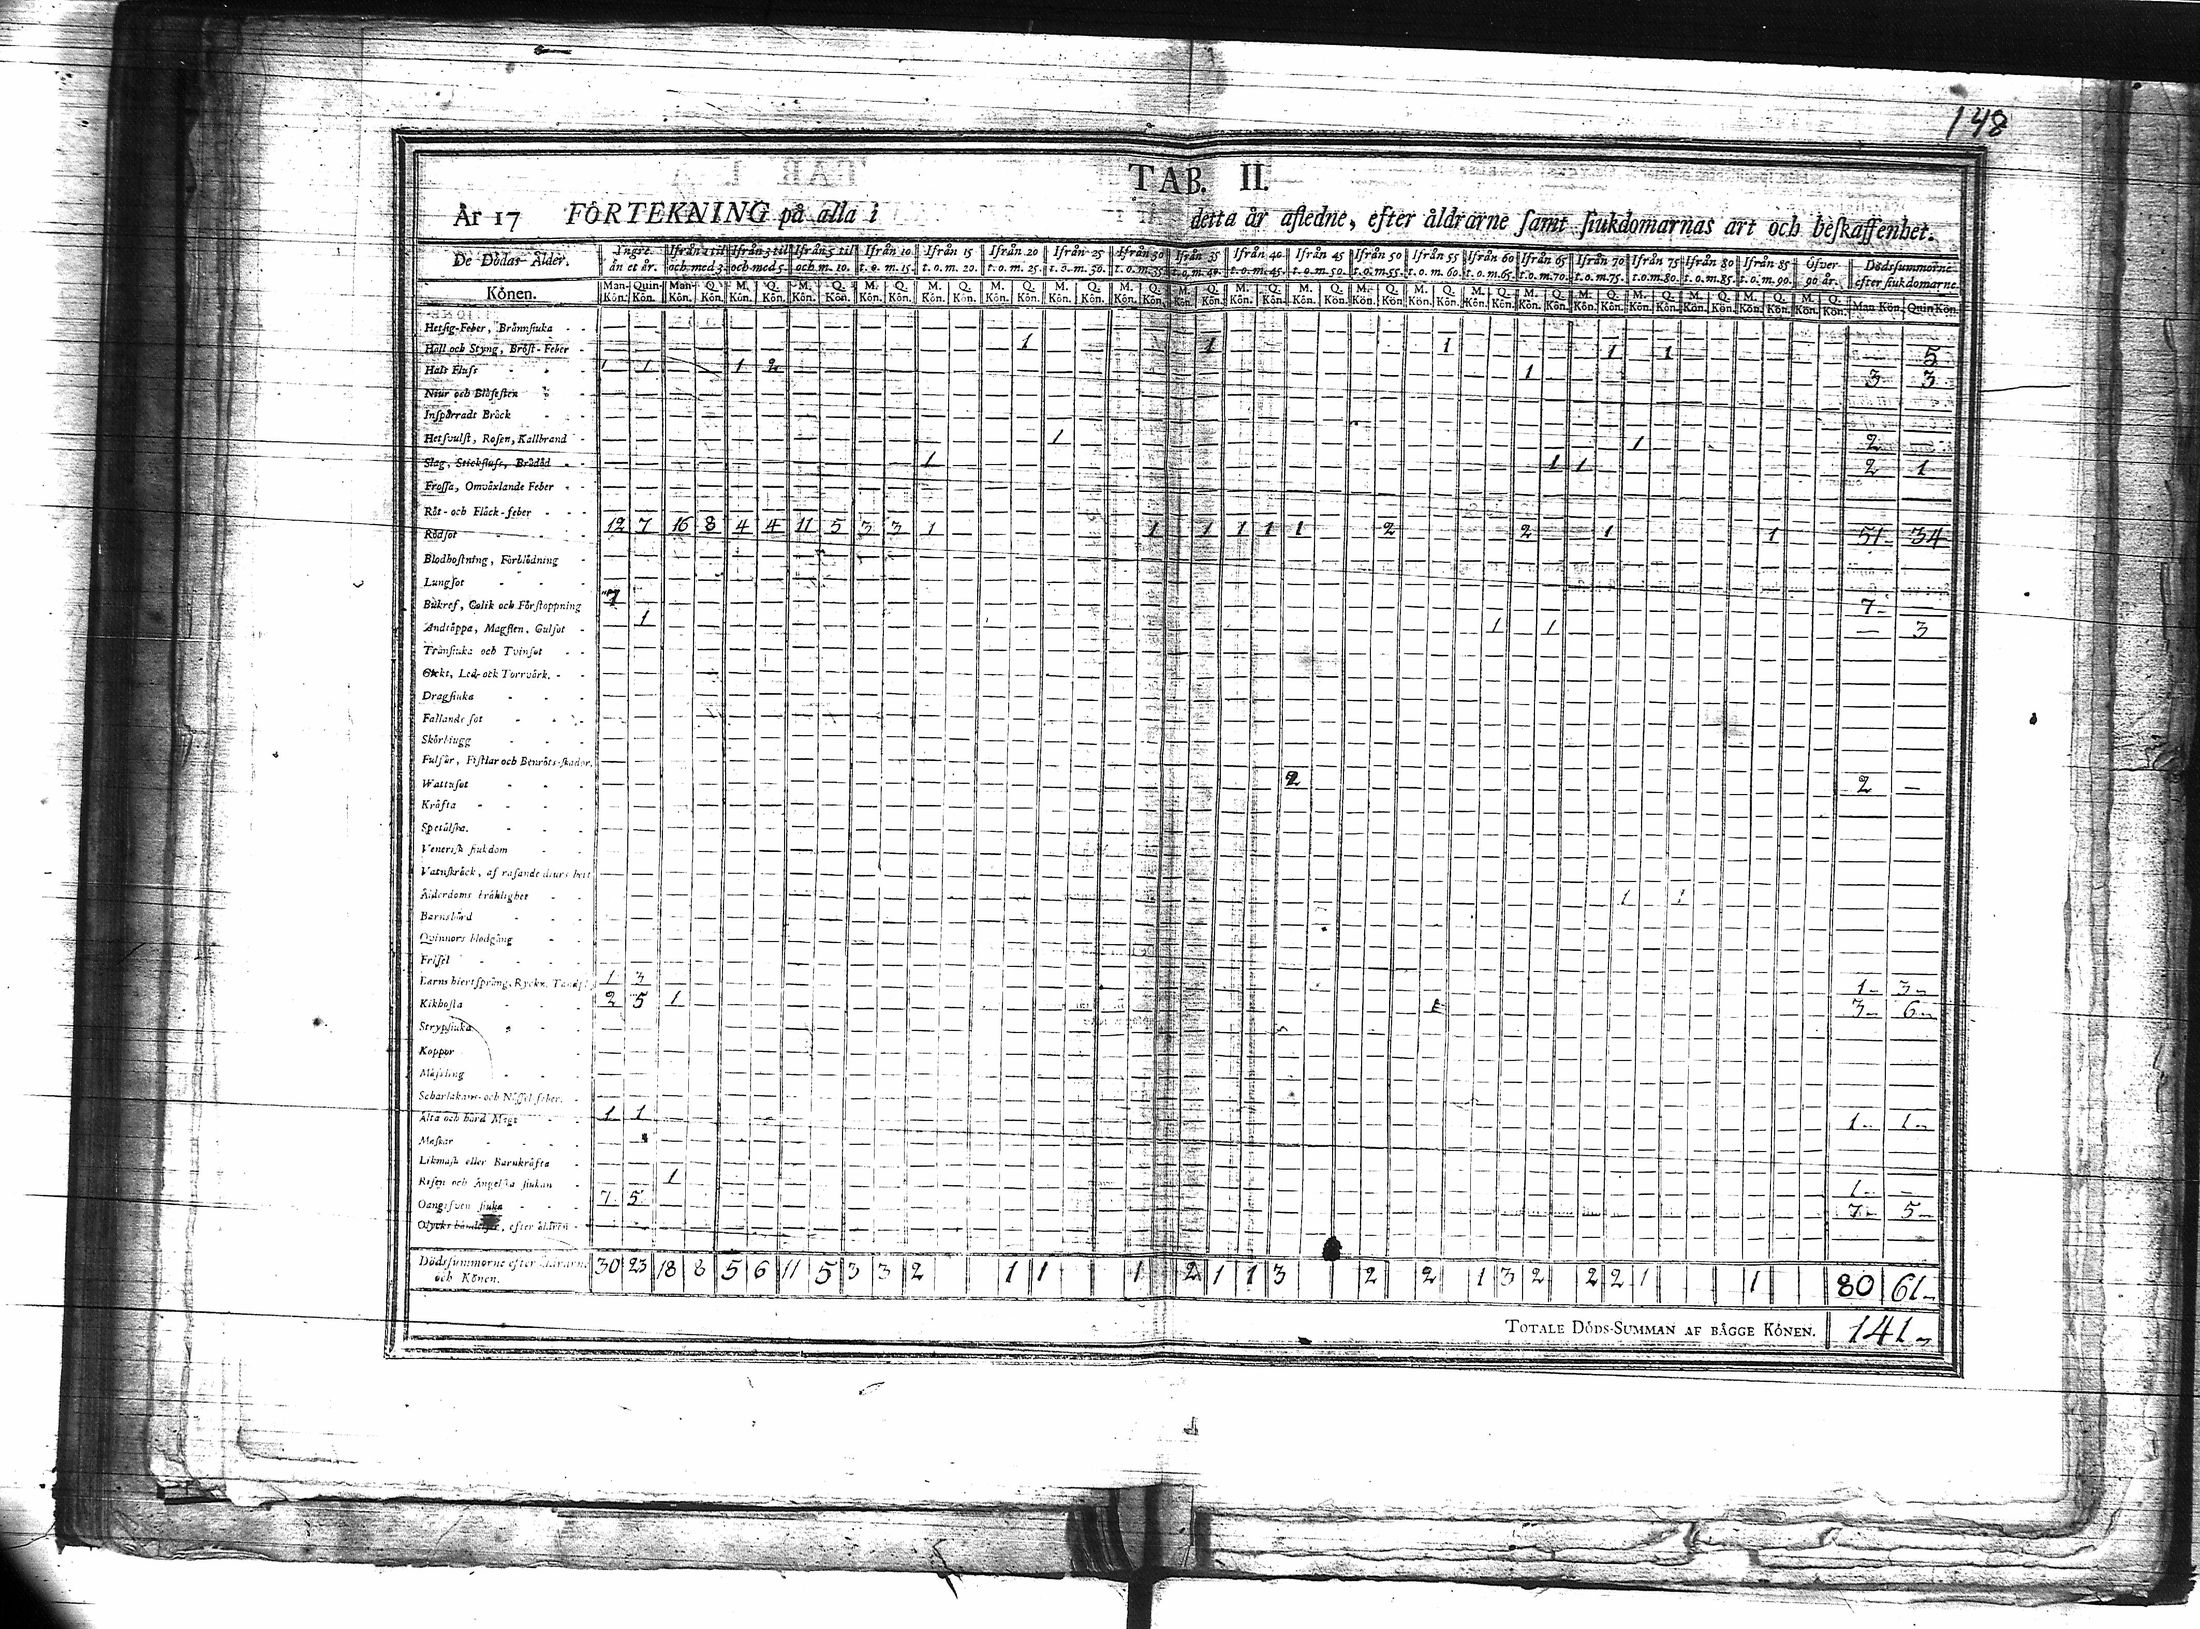 148
TAB. II.
År 17 FÖRTEKNING på alla i detta år afledne, efter åldrarne samt siukdomarnas art och beskaffenhet.
De Dödas Ålder. Yngre än et år. Ifrån 1 til och med 3. Ifrån 3 til och med 5. Ifrån 5 til och m. 10. Ifrån 10 t. o. m. 15. Ifrån 15 t. o. m. 20. Ifrån 20 t. o. m. 25. Ifrån 25 t. o. m. 30. Ifrån 30 t. o. m. 35. Ifrån 35 t. o. m. 40. Ifrån 40 t. o. m. 45. Ifrån 45 t. o. m. 50. Ifrån 50 t. o. m. 55. Ifrån 55 t. o. m. 60. Ifrån 60 t. o. m. 65. Ifrån 65 t. o. m. 70. Ifrån 70 t. o. m. 75. Ifrån 75 t. o. m. 80. Ifrån 80 t. o. m. 85. Ifrån 85 t. o. m. 90. Öfver 90 år. Dödssummorne efter siukdomarne.
Könen. Man-Kön. Quin-Kön. Man-Kön. Q. Kön. M. Kön. Q. Kön. M. Kön. Q. Kön. M. Kön. Q. Kön. M. Kön. Q. Kön. M. Kön. Q. Kön. M. Kön. Q. Kön. M. Kön. Q. Kön. M. Kön. Q. Kön. M. Kön. Q. Kön. M. Kön. Q. Kön. M. Kön. Q. Kön. M. Kön. Q. Kön. M. Kön. Q. Kön. M. Kön. Q. Kön. M. Kön. Q. Kön. M. Kön. Q. Kön. M. Kön. Q. Kön. M. Kön. Q. Kön. M. Kön. Q. Kön. Man Kön. Quin Kön.
Hetsig-Feber, Brännsiuka
Håll och Styng, Bröst-Feber 1 1 1 1 1 5
Hals Fluss 1 1 1 2 1 3 3
Niur och Blåssten
Insparradt Bråck
Hetsvulst, Rosen, Kallbrand 1 1 2
Slag, Stickfluss, Brådöd 1 1 1 2 1
Frossa, Omväxlande Feber
Röt- och Fläck-feber
Rödsot 12 7 16 8 4 4 11 5 3 3 1 1 1 1 1 1 2 2 1 1 51 34
Blodhostning, Förblödning
Lungsot
Bukref, Colik och Förstoppning 7 7
Andtäppa, Magsten, Gulsot 1 1 1 3
Tränsiuka och Tvinsot
Gickt, Led- ock Torrvärk.
Dragsiuka
Fallande sot
Skörbiugg
Fulsår, Fistlar och Benröts-skador.
Wattusot 2 2
Kräfta
Spetälska.
Venerisk siukdom
Vatuskräck, af rasande diurs bett
Ålderdoms bräklighet 1 1
Barnsbörd
Qvinnors blodgång
Frisel
Barns hiertsprång, Ryckn. 1 3 1 3
Kikhosta 2 5 1 3 6
Strypsiuka
Koppor
Mässling
Scharlakans- och Nässel feber.
Älta och hård Mage 1 1 1 1
Maskar
Likmask eller Barnkräfta
Risen och Ängelska siukan 1 1
Oangifven siuka 7 5 7 5
Olycks händelser, efter åldren
Dödssummorne efter åldrarne och Könen. 30 23 18 8 5 6 11 5 3 3 2 1 1 1 2 1 1 3 2 2 1 3 2 2 2 1 1 80 61
TOTALE DÖDS-SUMMAN AF BÅGGE KÖNEN. 141